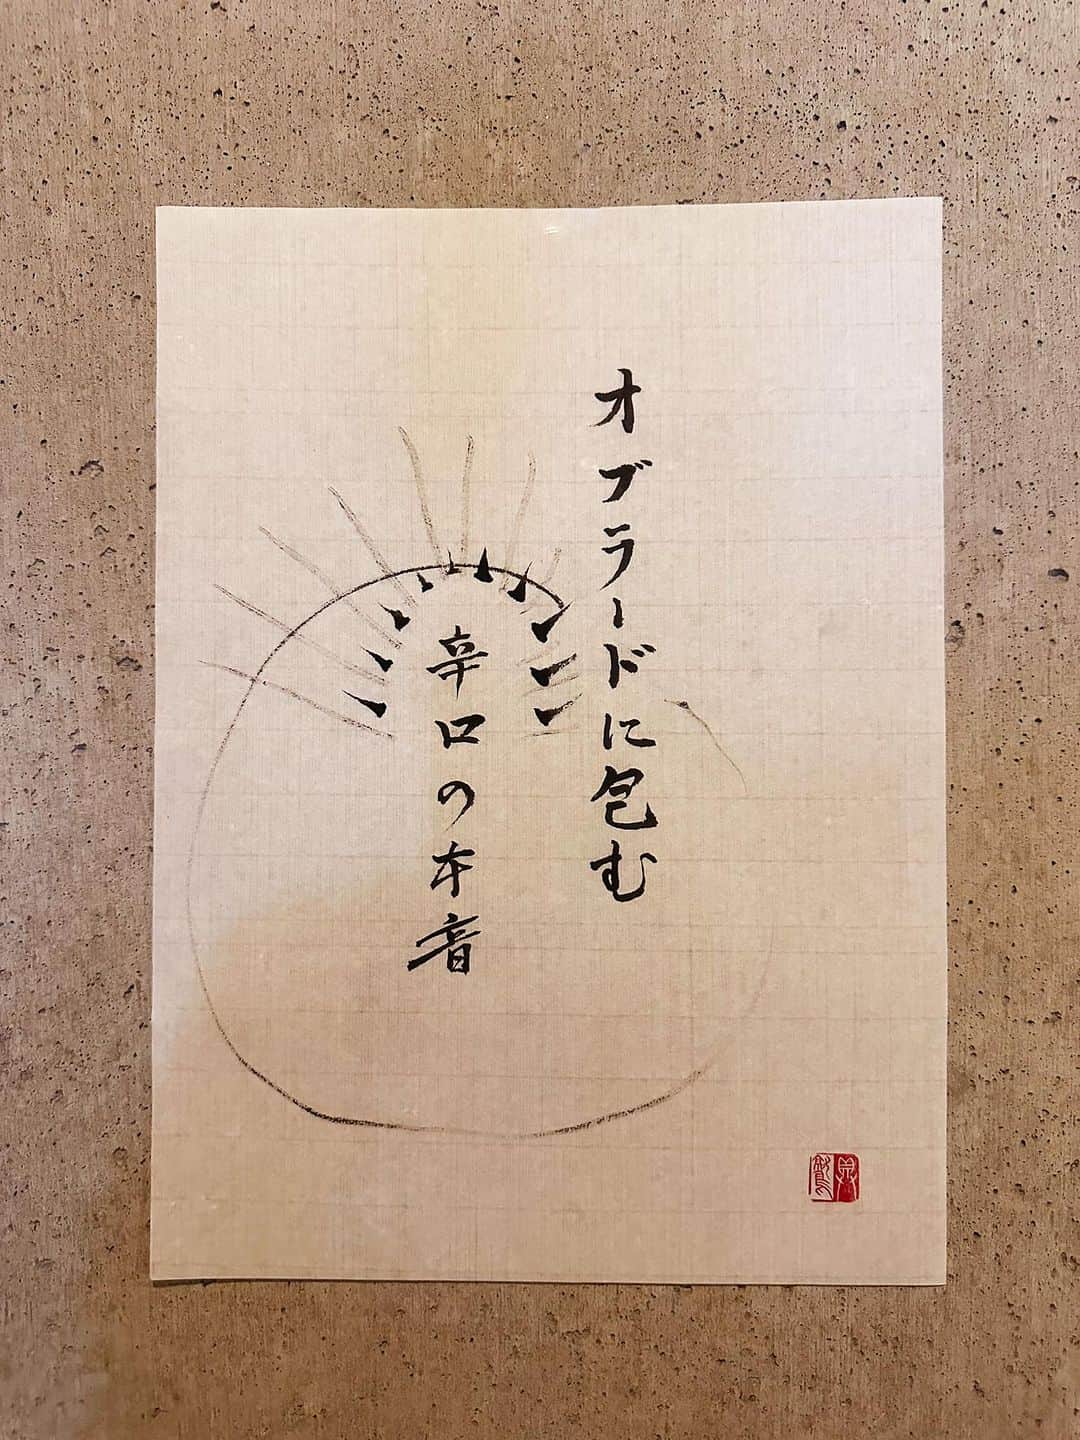 オブラードに包む
辛口の本音